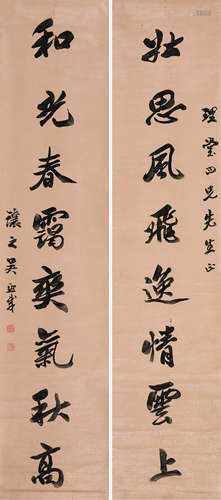 理堂四兄先生正
壯思風飛逸情雲上
和光春靄爽氣秋高
讓之吳熙載